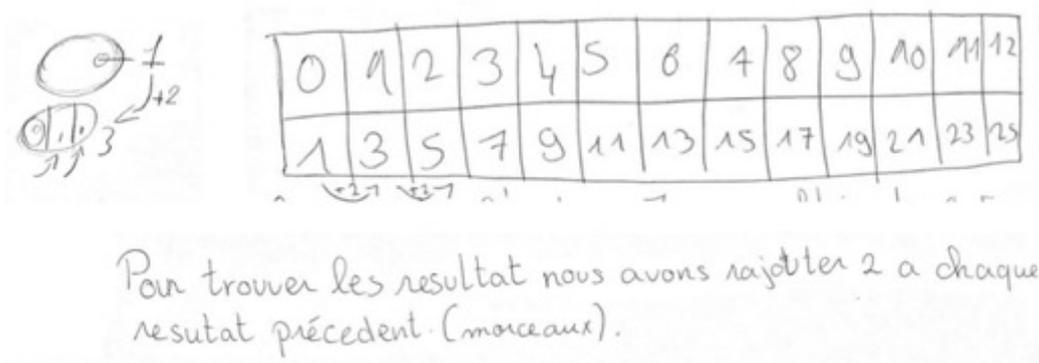 1
+2
3
0 1 2 3 4 5 6 7 8 9 10 11 12
1 3 5 7 9 11 13 15 17 19 21 23 25
+2 +2
Pour trouver les resultat nous avons rajouter 2 a chaque
resutat précedent. (morceaux).